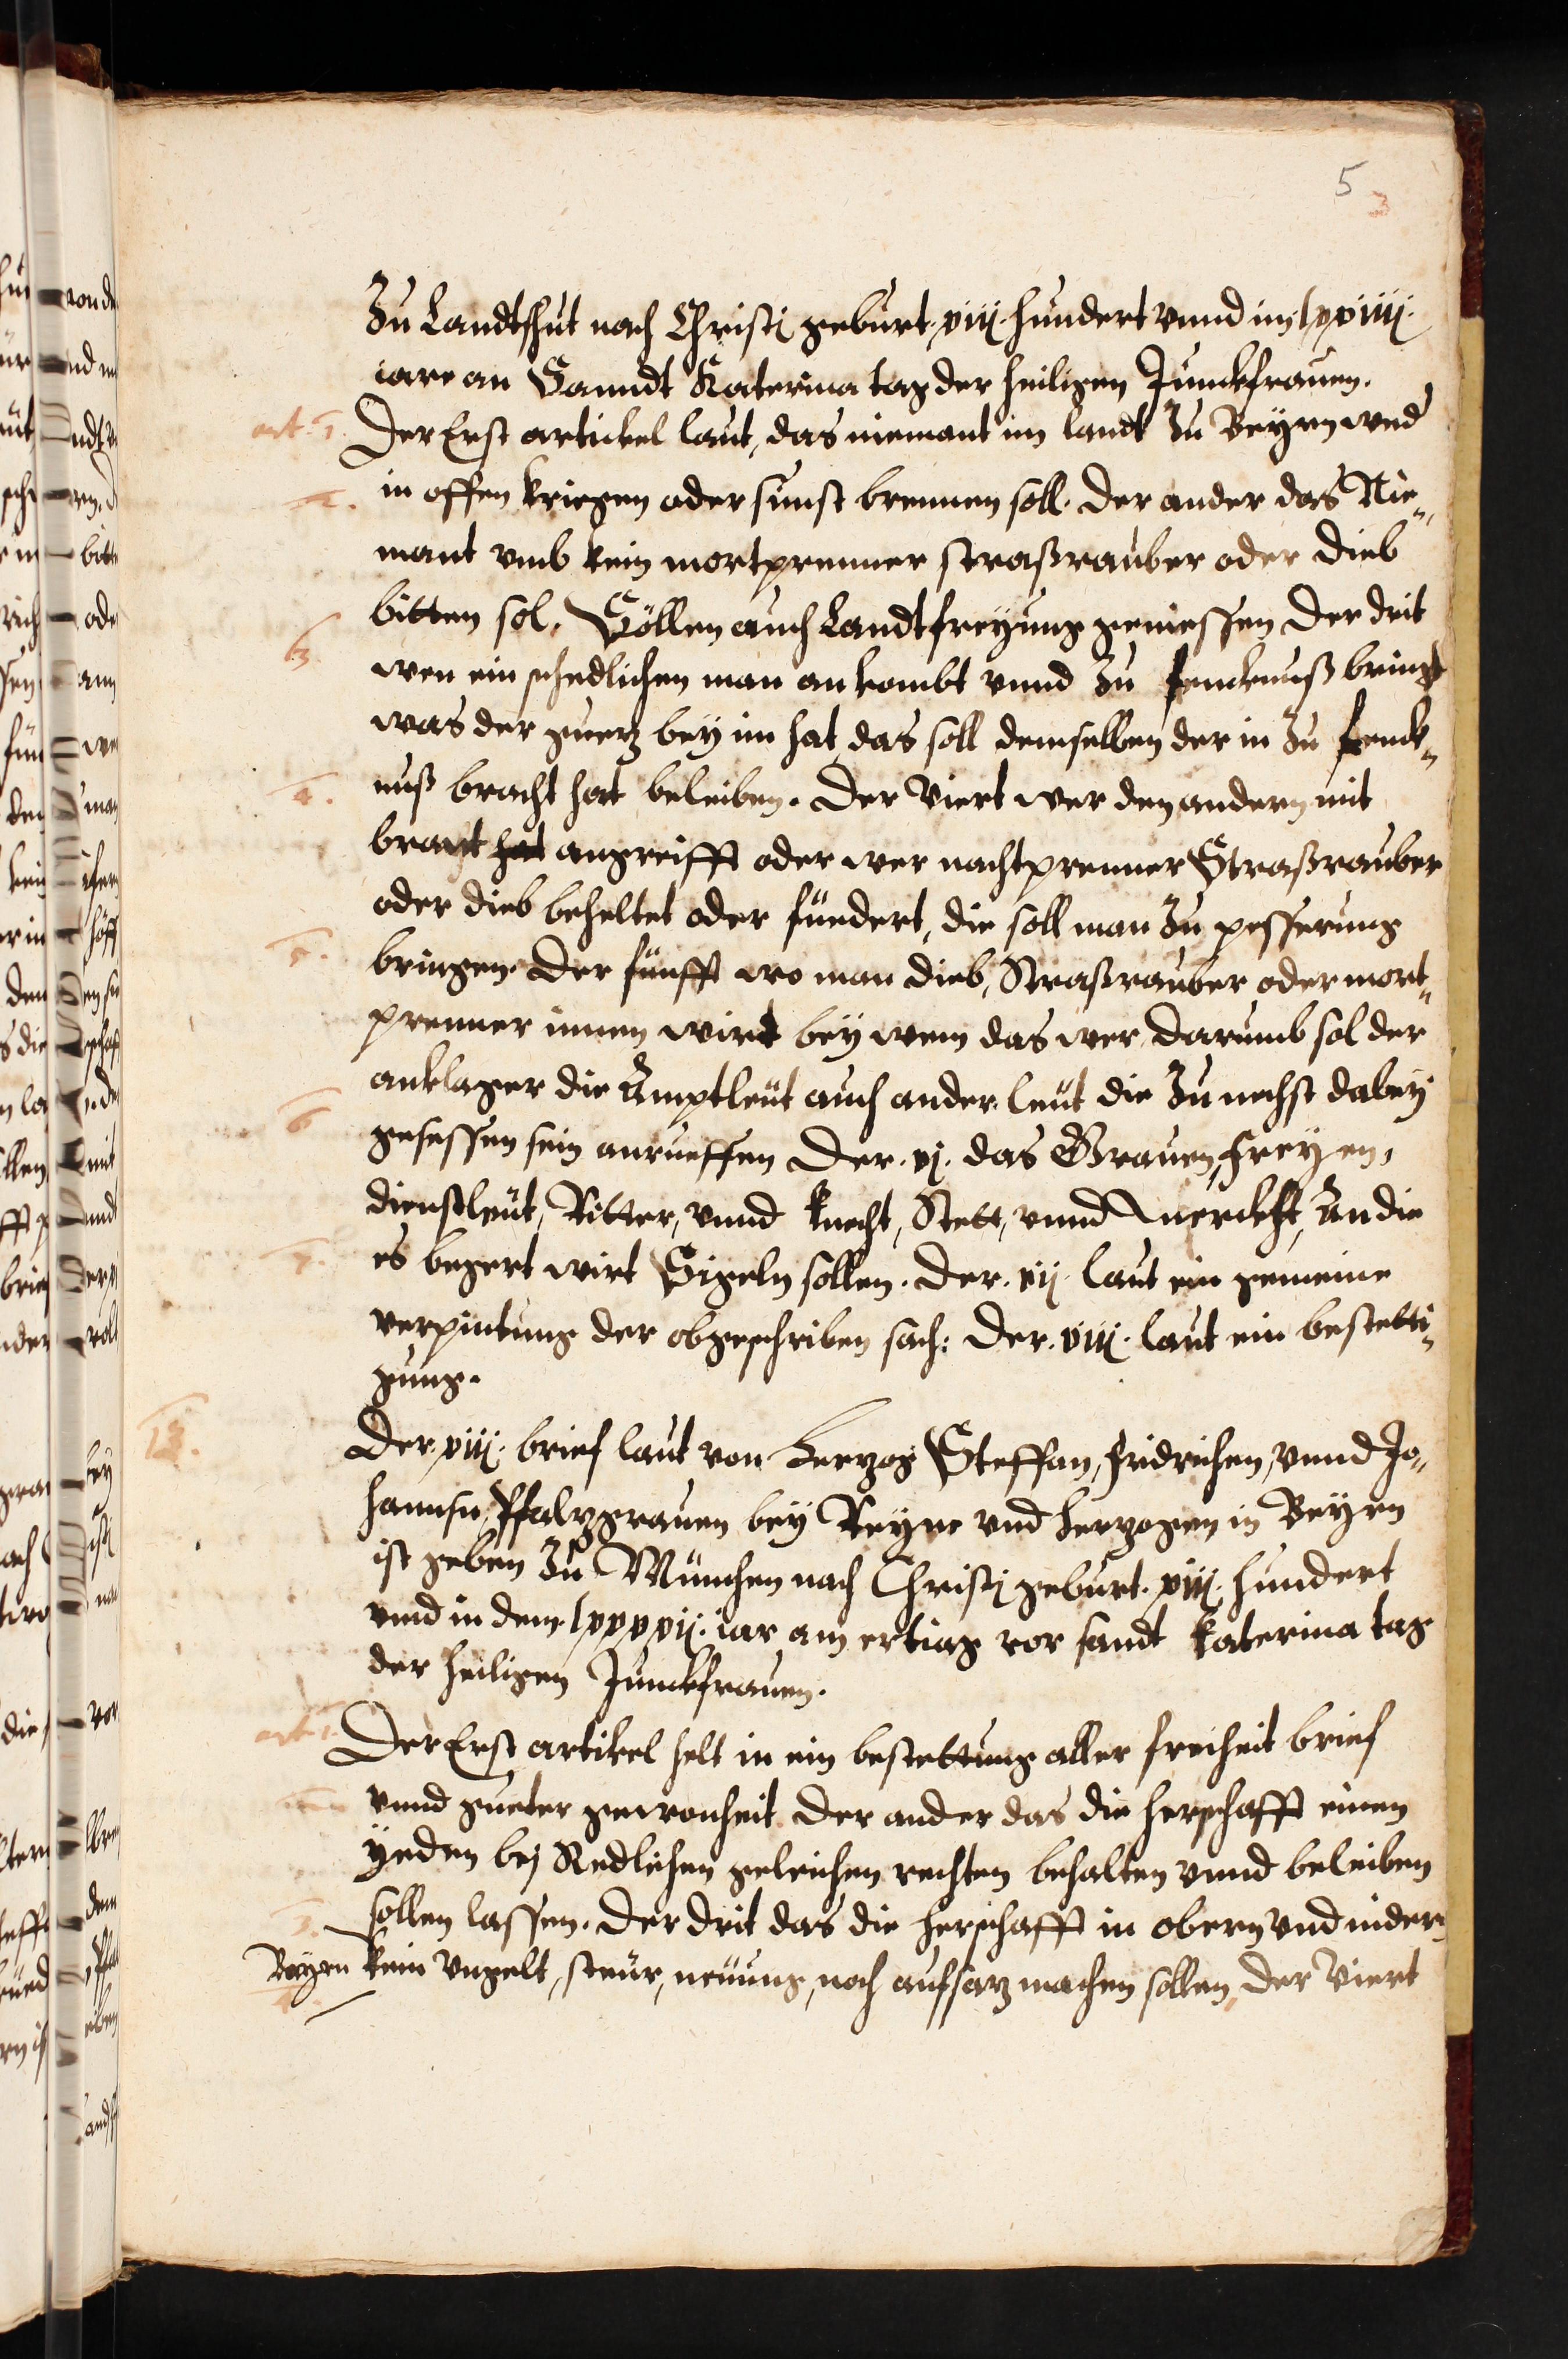 5
3
Zu Landtshut nach Christj geburt. xiij. hundert vnnd im lxxiiij.
iare an Sanndt Katerina tag der heiligen Junckfrauen.
art. 1. Der Erst artickel laut, das niemant im landt Zu Beyrn wed
2. in offen kriegen oder sunst brennen soll. Der ander das Nie„
mant vmb kein mortprenner straßrauber oder dieb
bitten sol. Söllen auch Landtfreyung geniessen Der drit
3. wen ein schedlichen man ankombt vnnd Zu fencknuß bringt
was der guetz bey im hat, das soll demselben der in Zu fenck„
4. nuß bracht hat beleiben. Der Viert wer den andern mit
brant hat angreifft oder wer nachtprenner Straßrauber
oder dieb beheltet oder fündert, die soll man Zu pesserung
5. bringen. Der fünfft wo man dieb, Straßrauber oder mort„
prenner innen wirt bey wem das wer, darumb sol der
anklager die Amptleüt auch ander leüt die Zu nechst dabey
6 gesessen sein anrueffen Der. vj. das Grauen, freyen,
dienstleüt, Ritter, vnnd knecht, Stett, vnnd Merckht, An die
7. es begert wirt Sigeln sollen. Der. vij. laut ein gemeine
verpintung der obgeschriben sach: Der. viij. laut ein bestetti„
gung.
13. Der. xiij. brief laut von Herzog Steffan, fridrichen, vnnd Jo„
hannsn, Pfalzgrauen bey Reyne vnd herzogen in Beyrn
ist geben Zu München nach Christj geburt. xiij. hundert
vnnd in dem lxxxxij. iar am ertiag vor sandt Katerina tag
der heiligen Junckfrauen.
art. 1. Der Erst artikel helt in ein bestettung aller freiheit brief
vnnd gueter gewonheit Der ander das die herschafft einen
yeden bej Redlichen geleichen rechten behalten vnnd beleiben
3. sollen lassen. Der drit das die herschafft in obern vnd nidern
Bayrn kein vngelt, steür, neüung, noch aufsatz machen sollen, Der Viert